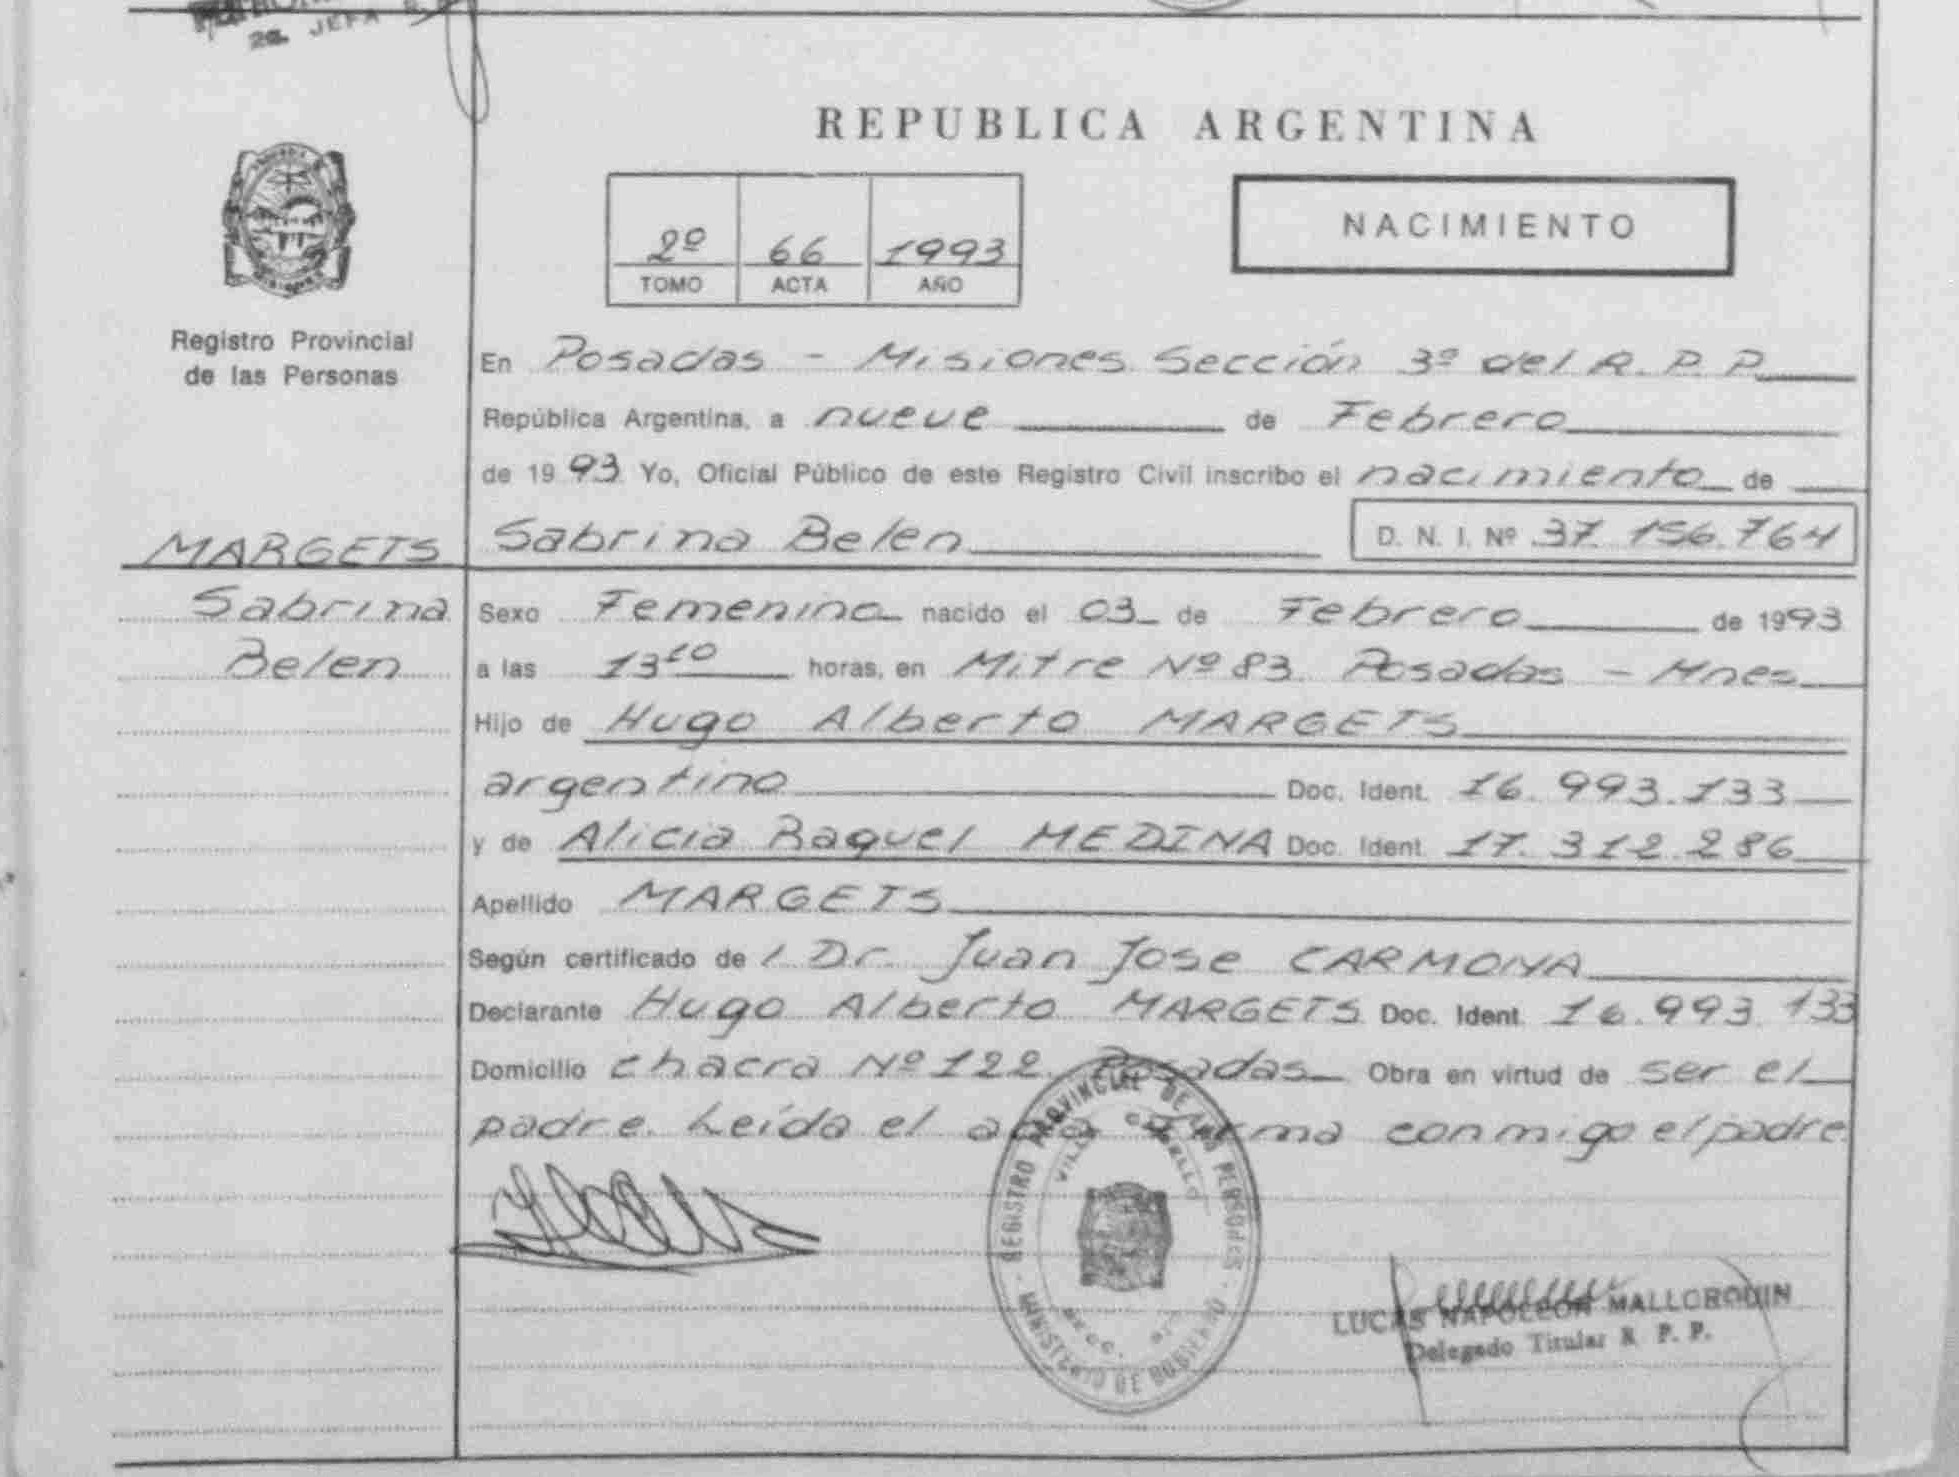 2a. JEFA
REPUBLICA ARGENTINA
2º 66 1993
TOMO ACTA AÑO
NACIMIENTO
Registro Provincial
de las Personas
En Posadas - Misiones Sección 3º del R. P. P.
República Argentina, a nueve de Febrero
de 1993 Yo, Oficial Público de este Registro Civil inscribo el nacimiento de
MARGETS Sabrina Belen D. N. I. Nº 37.156.764
Sabrina Sexo Femenino nacido el 03 de Febrero de 1993
Belen a las 13 horas, en Mitre Nº 83 Posadas - Mnes
Hijo de Hugo Alberto MARGETS
argentino Doc. Ident. 16.993.133
y de Alicia Raquel MEDINA Doc. Ident. 17.312.286
Apellido MARGETS
Según certificado de l Dr. Juan Jose CARMONA
Declarante Hugo Alberto MARGETS Doc. Ident. 16.993.133
Domicilio chacra Nº 122 Posadas Obra en virtud de ser el
padre. Leída el acta Firma conmigo el padre
REGISTRO PROVINCIAL DE LAS PERSONAS
VILLA CABELLO
MINISTERIO DE GOBIERNO
LUCAS NAPOLEON MALLORQUIN
Delegado Titular R. P. P.